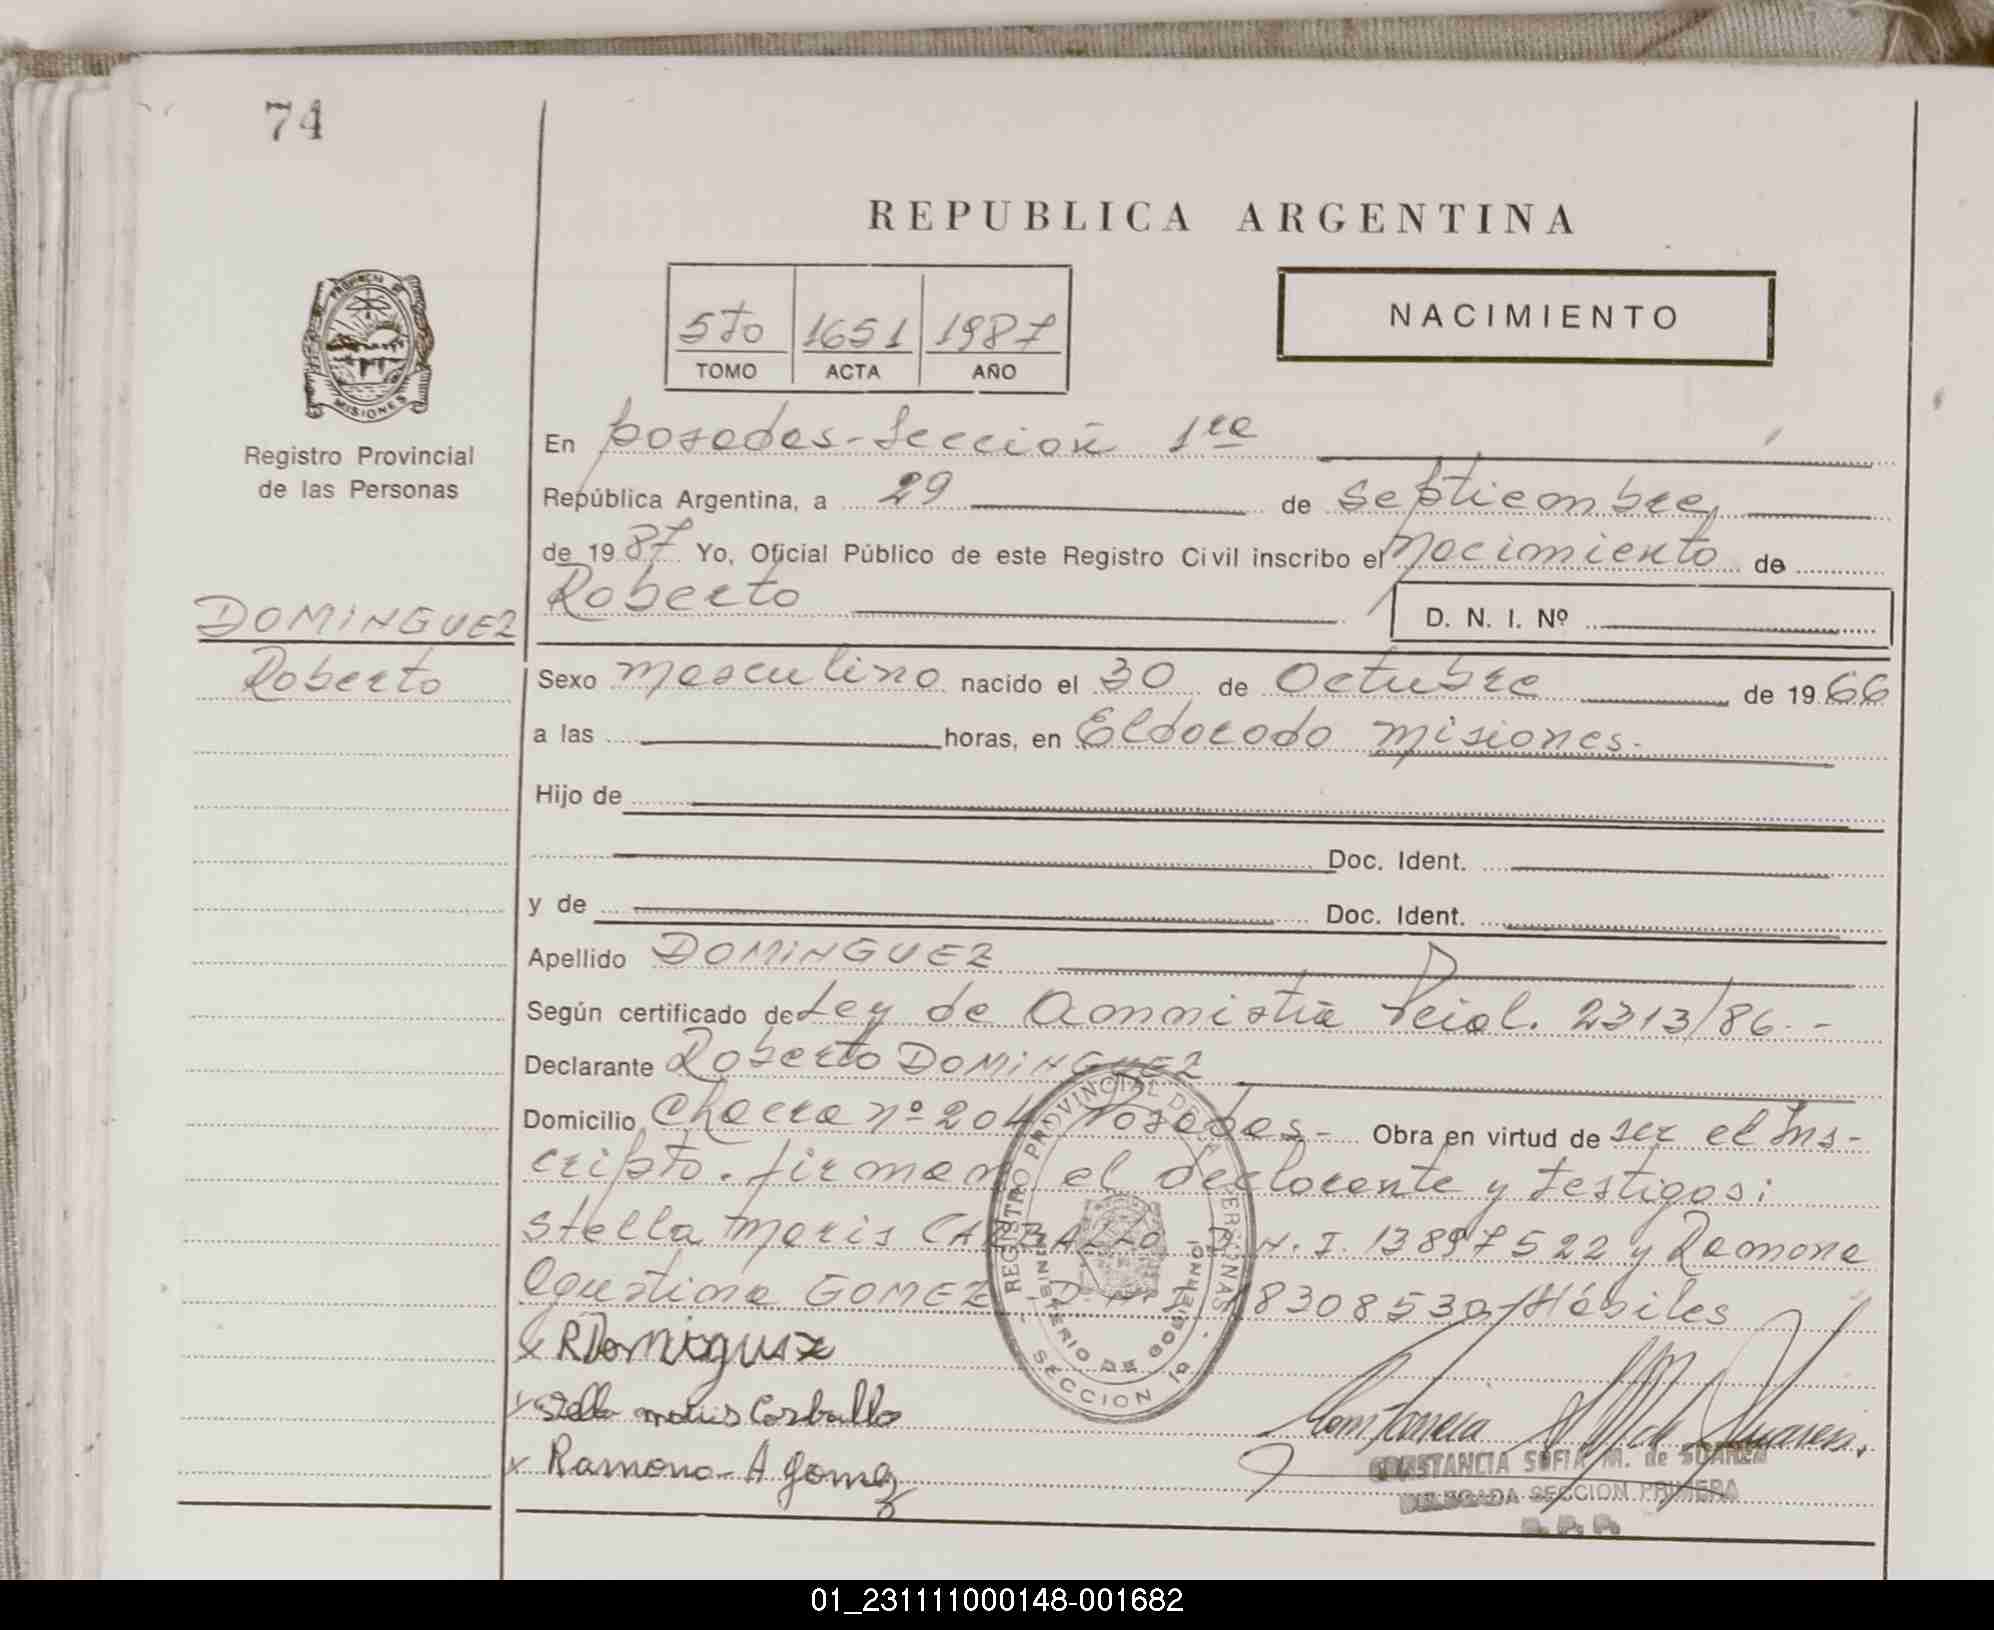 74
REPUBLICA ARGENTINA
5to 1651 1987
TOMO ACTA AÑO
NACIMIENTO
PROVINCIA DE
MISIONES
Registro Provincial
de las Personas
DOMINGUEZ
Roberto
En Posadas-Sección 1ra
República Argentina, a 29 de Septiembre
de 1987 Yo, Oficial Público de este Registro Civil inscribo el Nacimiento de
Roberto
D. N. I. Nº
Sexo masculino nacido el 30 de Octubre de 1966
a las horas, en Eldorado Misiones.
Hijo de
Doc. Ident.
y de Doc. Ident.
Apellido DOMINGUEZ
Según certificado de Ley de Amnistia Pcial. 2313/86.-
Declarante Roberto DOMINGUEZ
Domicilio Chacra nº 204 Posadas- Obra en virtud de ser el Ins-
cripto. firman el declarante y testigos:
Stella Maris CARBALLO D.N.I. 13897522 y Ramona
Agustina GOMEZ D.N.I. 18308530-Hábiles
REGISTRO PROVINCIAL DE LAS PERSONAS
MINISTERIO DE GOBIERNO
SECCION 1ª
x RDominguez
x Stella maris Carballo
x Ramona-A gomez
Constancia S M de Suarez.
CONSTANCIA SOFIA M. de SUAREZ
DELEGADA SECCION PRIMERA
R. P. P.
01_231111000148-001682